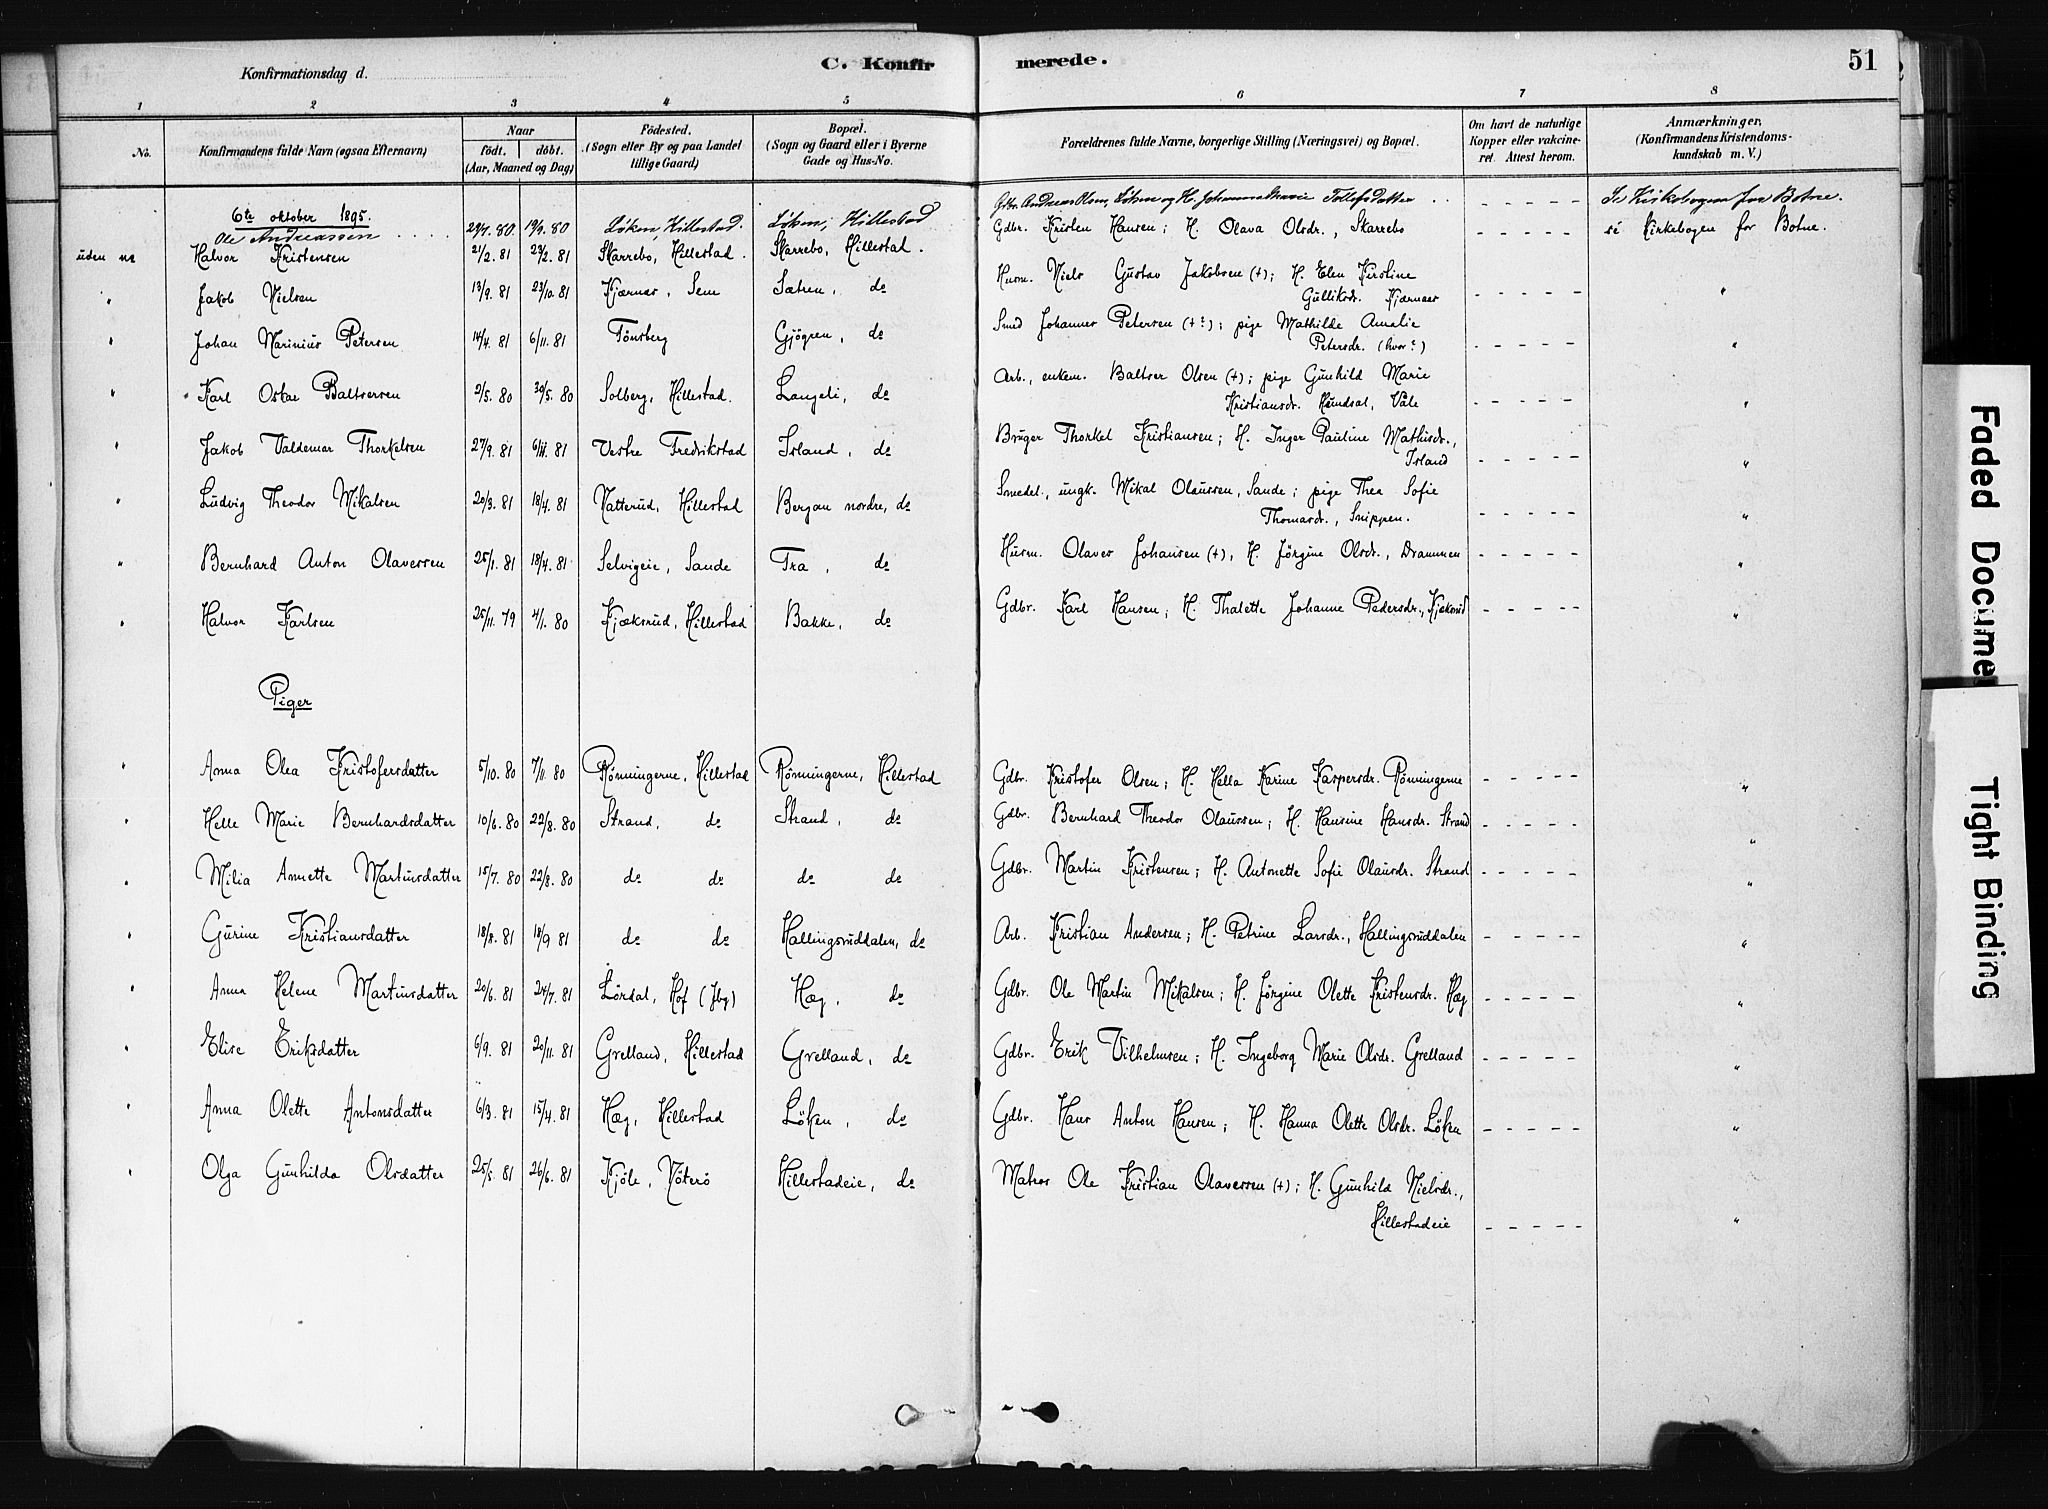 Konfirmationsdag d.
C. Konfir
merede.
51
1 2 3 4 5 6 7 8
No.
Konfirmandens fulde Navn (ogsaa Efternavn)
Naar
født. døbt.
(Aar, Maaned og Dag)
Födested.
(Sogn eller By og paa Landet
tillige Gaard)
Bopæl.
(Sogn og Gaard eller i Byerne
Gade og Hus-No.
Forældrenes fulde Navne, borgerlige Stilling (Næringsvei) og Bopæl.
Om havt de naturlige
Kopper eller vakcine-
ret. Attest herom.
Anmærkninger,
(Konfirmandens Kristendoms-
kundskab m. V.)
6te oktober 1895.
Ole Andreassen .... 29/7.80 19/9.80 Løken, Hillestad. Løken, Hillestad Gdbr. Andreas Olsen, Løken og H. Johanna Marie Tollefsdatter .. - - - - - Se Kirkebogen for Botne.
uden no Halvor Kristensen 21/2.81 27/2.81 Skarrebo, Hillestad. Skarrebo, Hillestad. Gdbr. Kristen Hansen; H. Olava Olsdr., Skarrebo - - - - - se Kirkebogen for Botne.
" Jakob Nielsen 13/9.81 23/10.81 Kjærnæs, Sem Sætren, do Husm. Niels Gustav Jakobsen (+); H. Elen Kirstine
Gulliksdr. Kjærnæs - - - - - "
" Johan Marinius Petersen 14/4.81 6/11.81 Tönsberg Gjögren, do Smed Johannes Petersen (+?); pige Mathilde Amalie
Petersdr. (hvor?) - - - - - "
" Karl Oskar Baltsersen 2/5.80 30/5.80 Solberg, Hillestad. Langeli, do Arb., enkem. Baltser Olsen (+); pige Gunhild Marie
Kristiansdr. Hundsal, Våle - - - - - "
" Jakob Valdemar Thorkelsen 27/9.81 6/11.81 Vestre Fredrikstad Island, do Bruger Thorkel Kristiansen; H. Inger Pauline Mathisdr.,
Island - - - - - "
" Ludvig Theodor Mikalsen 20/3.81 18/4.81 Vatterud, Hillestad Bergan nordre, do Smedel., ungk. Mikal Olaussen, Sande; pige Thea Sofie
Thomasdr., Snippen. - - - - - "
" Bernhard Anton Olaversen 25/1.81 18/4.81 Selvigeie, Sande Fra, do Husm. Olaves Johansen (+), H. Jörgine Olsdr., Drammen - - - - - "
" Halvor Karlsen 25/11.79 4/1.80 Kjæksrud, Hillestad Bakke, do Gdbr. Karl Hansen; H. Thalette Johanne Pedersdr., Kjæksrud - - - - - "
Piger
" Anna Olea Kristofersdatter 5/10.80 7/11.80 Rönningerne, Hillestad Rönningerne, Hillestad Gdbr. Kristofer Olsen; H. Hella Karine Kaspersdr. Rönningerne - - - - - "
" Helle Marie Bernhardsdatter 10/6.80 22/8.80 Strand, do Strand, do Gdbr. Bernhard Theodor Olaussen; H. Hansine Hansdr. Strand - - - - - "
" Milia Annette Martinsdatter 15/7.80 22/8.80 do do do do Gdbr. Martin Kristensen; H. Antonette Sofie Olausdr. Strand - - - - - "
" Gurine Kristiansdatter 18/8.81 18/9 81 do do Hallingsruddalen, do Arb. Kristian Andersen; H. Petrine Larsdr., Hallingsruddalen - - - - - "
" Anna Helene Martinsdatter 20/6.81 24/7.81 Lördal, Hof (Jbg) Hæg, do Gdbr. Ole Martin Mikalsen; H. Jörgine Olette Kristensdr. Hæg - - - - - "
" Elise Eriksdatter 6/9.81 20/11.81 Grelland, Hillestad Grelland, do Gdbr. Erik Vilhelmsen; H. Ingeborg Marie Olsdr. Grelland - - - - - "
" Anna Olette Antonsdatter 6/3.81 15/4.81 Hæg, Hillestad Löken, do Gdbr. Hans Anton Hansen; H. Hanna Olette Olsdr. Löken - - - - - "
" Olga Gunhilda Olsdatter 25/5.81 26/6.81 Kjöle, Nöterö Hillestadeie, do Matros Ole Kristian Olaversen (+); H. Gunhild Nielsdr.,
Hillestadeie - - - - - "
Faded Docume
Tight Binding